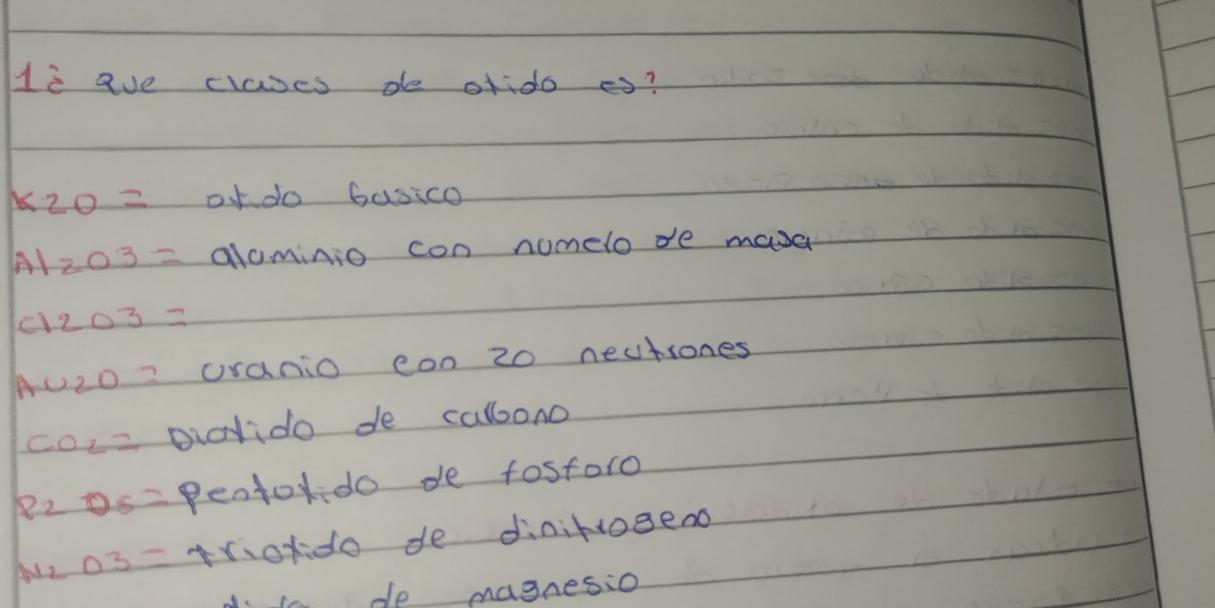 1¿ que clases de oxido es?
K2O = oxido basico
Al2O3 = aluminio con numelo de masa
Cl2O3 =
AU2O = uranio con 20 neutrones
CO2 = Dioxido de carbono
P2 O5 = pentoxido de fosforo
N2 O3 = trioxido de dinitrogeno
de magnesio